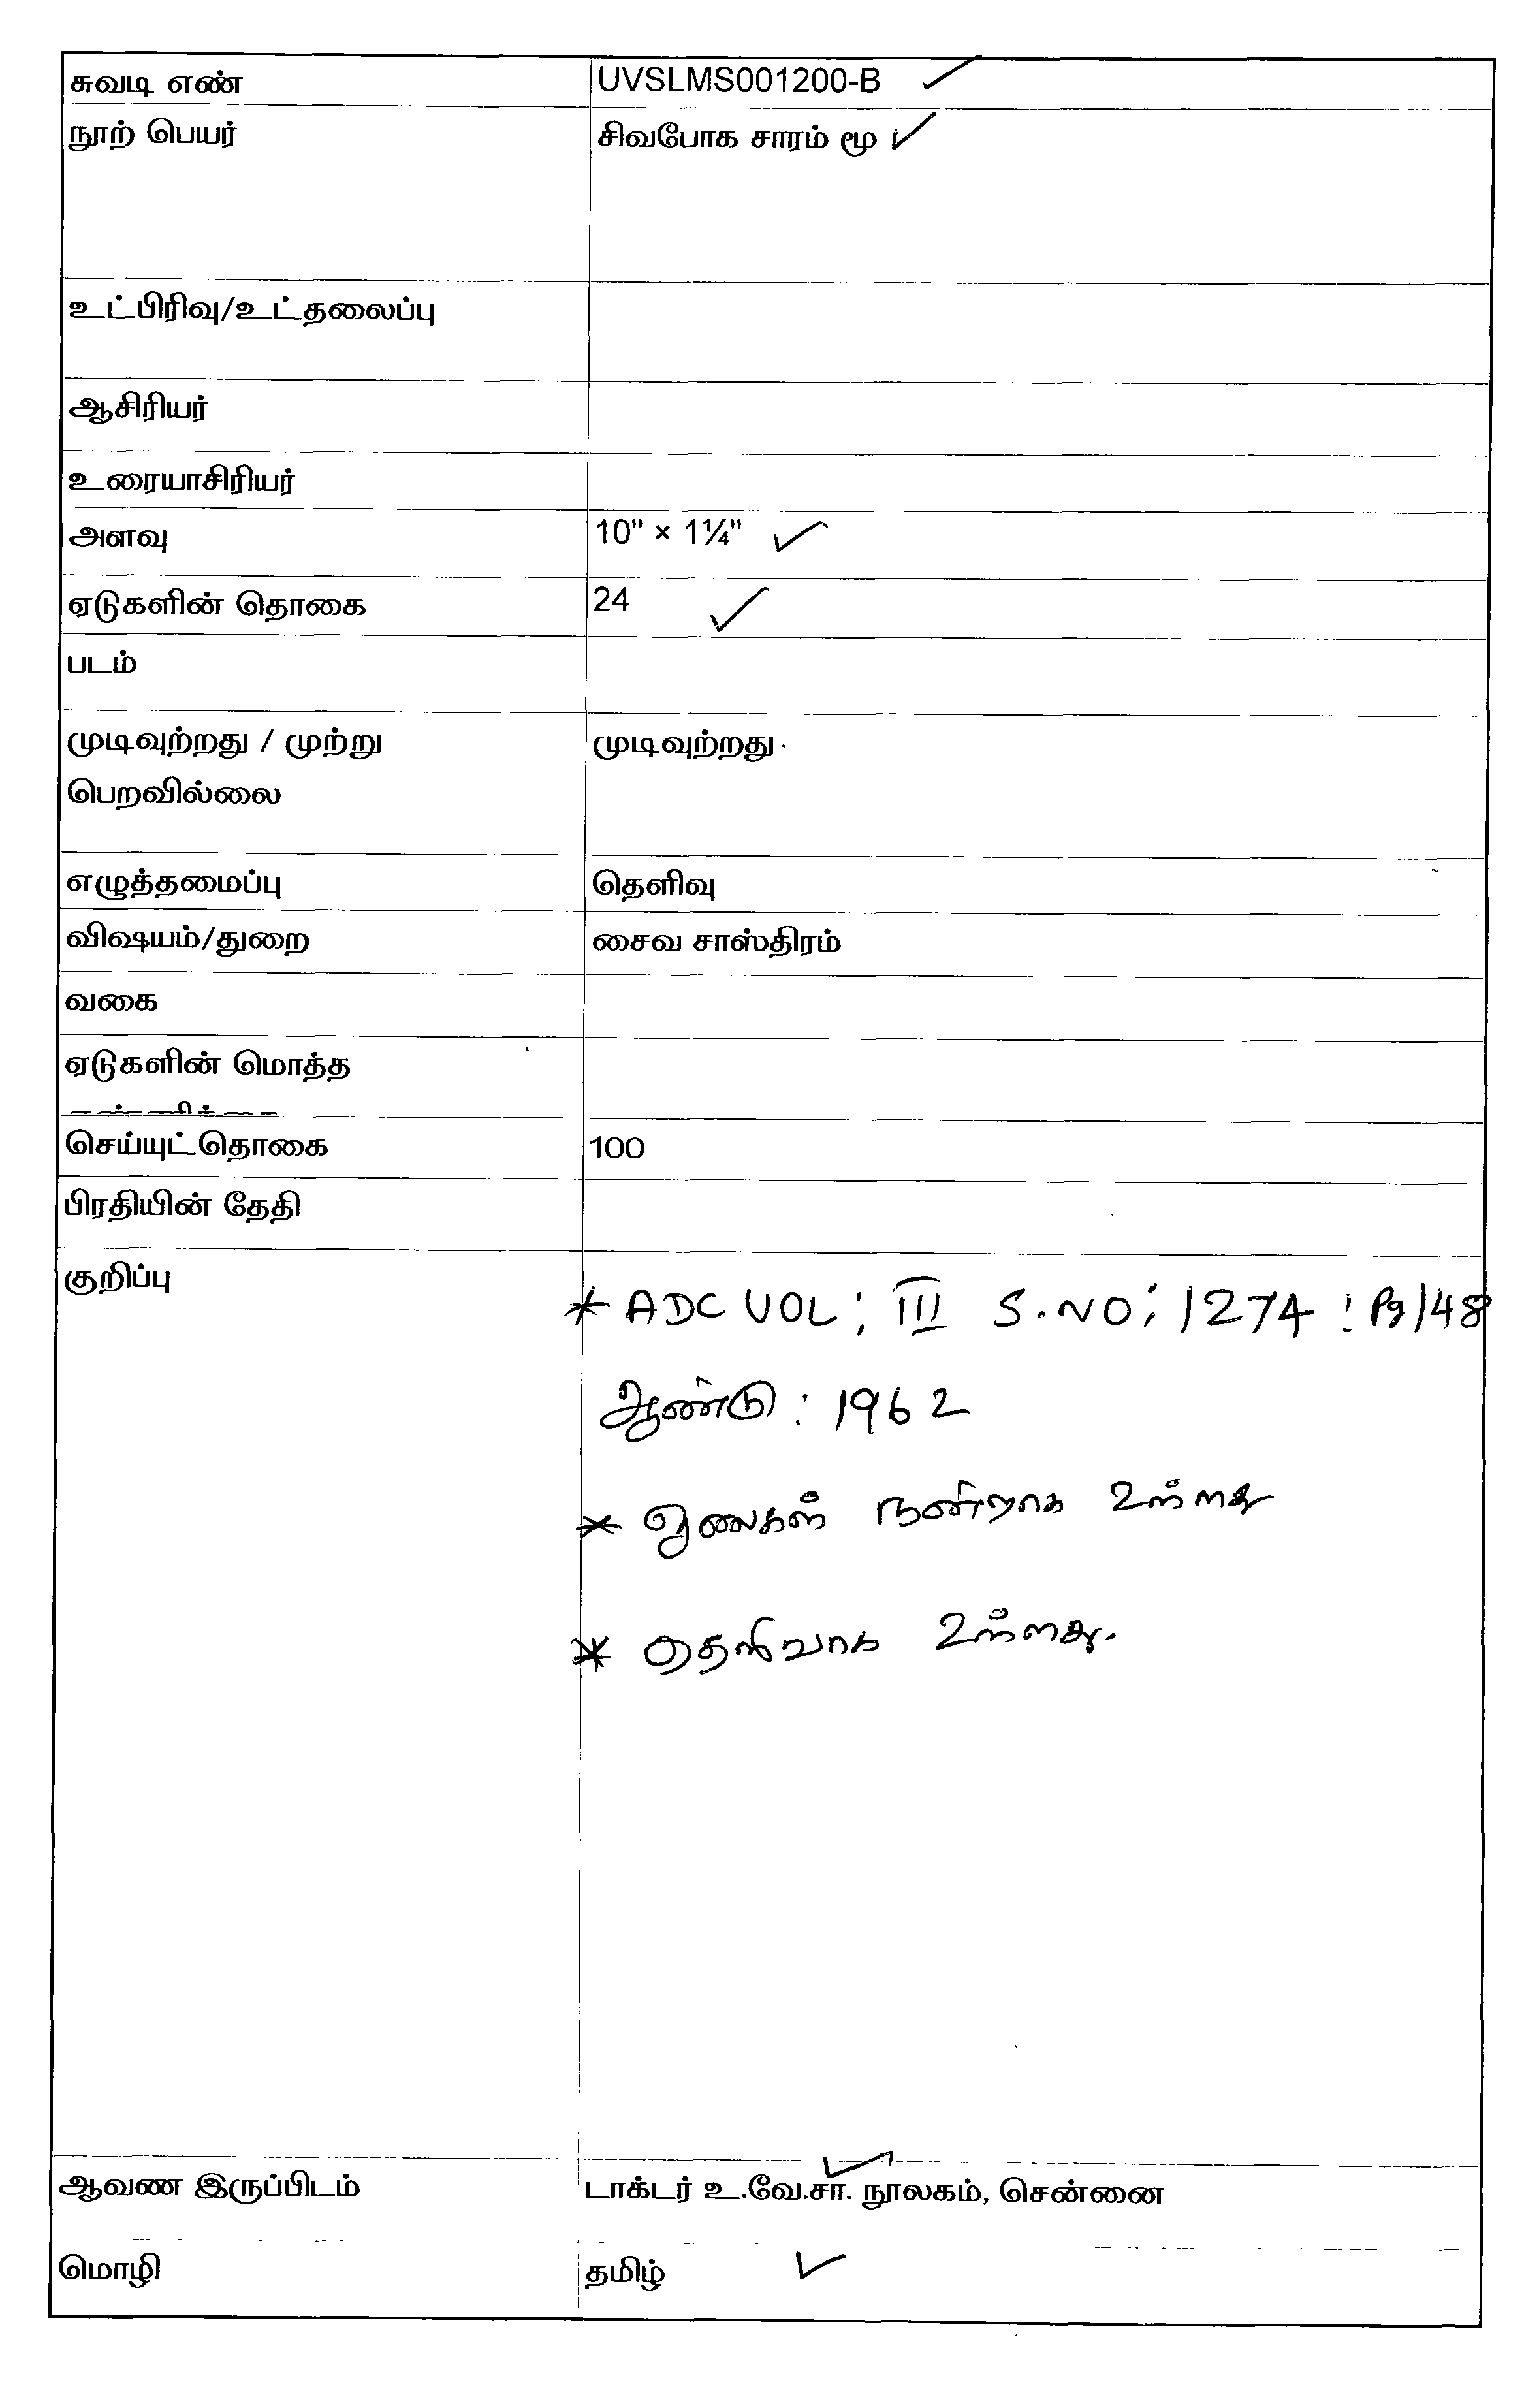 சுவடி எண் UVSLMS001200-B ✓
நூற் பெயர் சிவபோக சாரம் மூ ✓
உட்பிரிவு/உட்தலைப்பு
ஆசிரியர்
உரையாசிரியர்
அளவு 10" × 1¼" ✓
ஏடுகளின் தொகை 24 ✓
படம்
முடிவுற்றது / முற்று முடிவுற்றது
பெறவில்லை
எழுத்தமைப்பு தெளிவு
விஷயம்/துறை சைவ சாஸ்திரம்
வகை
ஏடுகளின் மொத்த
செய்யுட்தொகை 100
பிரதியின் தேதி
குறிப்பு * ADC VOL : III S.NO : 1274 : Pg 148
ஆண்டு : 1962
* நன்றாக உள்ளது
* தெளிவாக உள்ளது.
ஆவண இருப்பிடம் டாக்டர் உ.வே.சா. நூலகம், சென்னை ✓
மொழி தமிழ் ✓